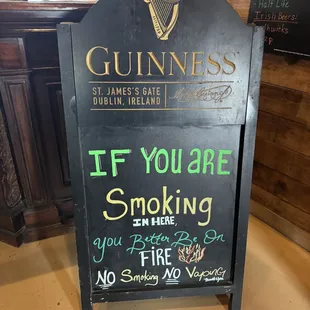 Half Life
Irish Beers!
GUINNESS
ST. JAMES'S GATE
DUBLIN, IRELAND
IF YOU ARE
Smoking
IN HERE,
you Better Be On
FIRE
NO Smoking NO Vaping